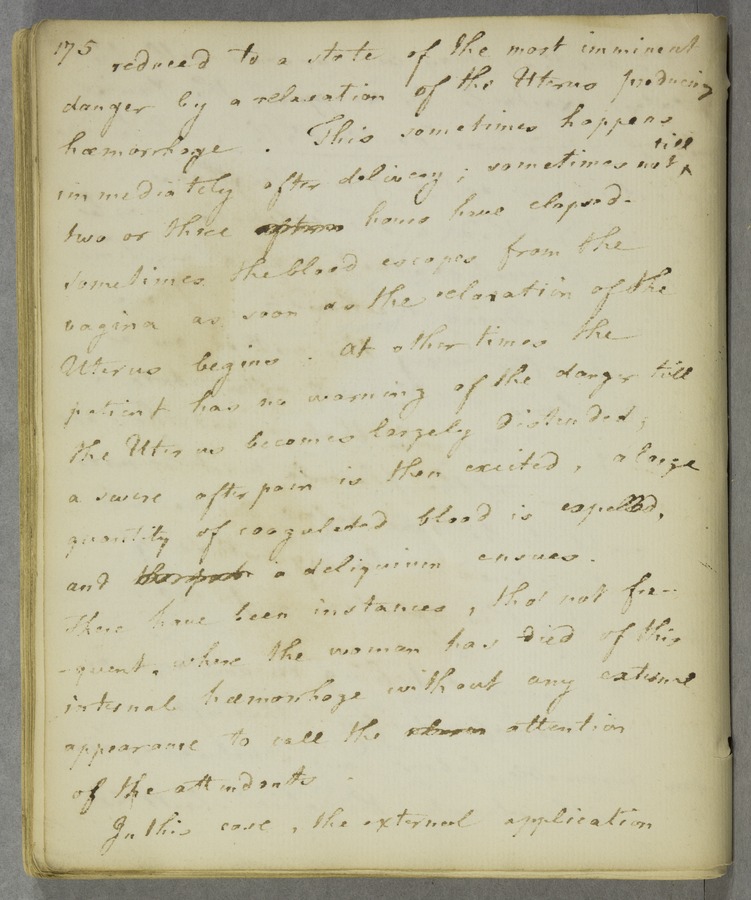 175
reduced to a state of the most imminent
danger by a relaxation of the Uterus producing
hæmorrhage . This sometimes happens
immediately after delivery ; sometimes not till
two or three hours have elapsed.
sometimes the blood escapes from the
vagina as soon as the relaxation of the
Uterus begins . At other times the
patient has no warning of the danger till
the Uterus becomes largely distended ;
a severe after pain is then excited , a large
quantity of coagulated blood is expelled,
and a deliquium ensues .
There have been instances , tho' not fre-
-quent, where the woman has died of this
internal hæmorrhage without any external
appearance to call the attention
of the attendants .
In this case , the external application